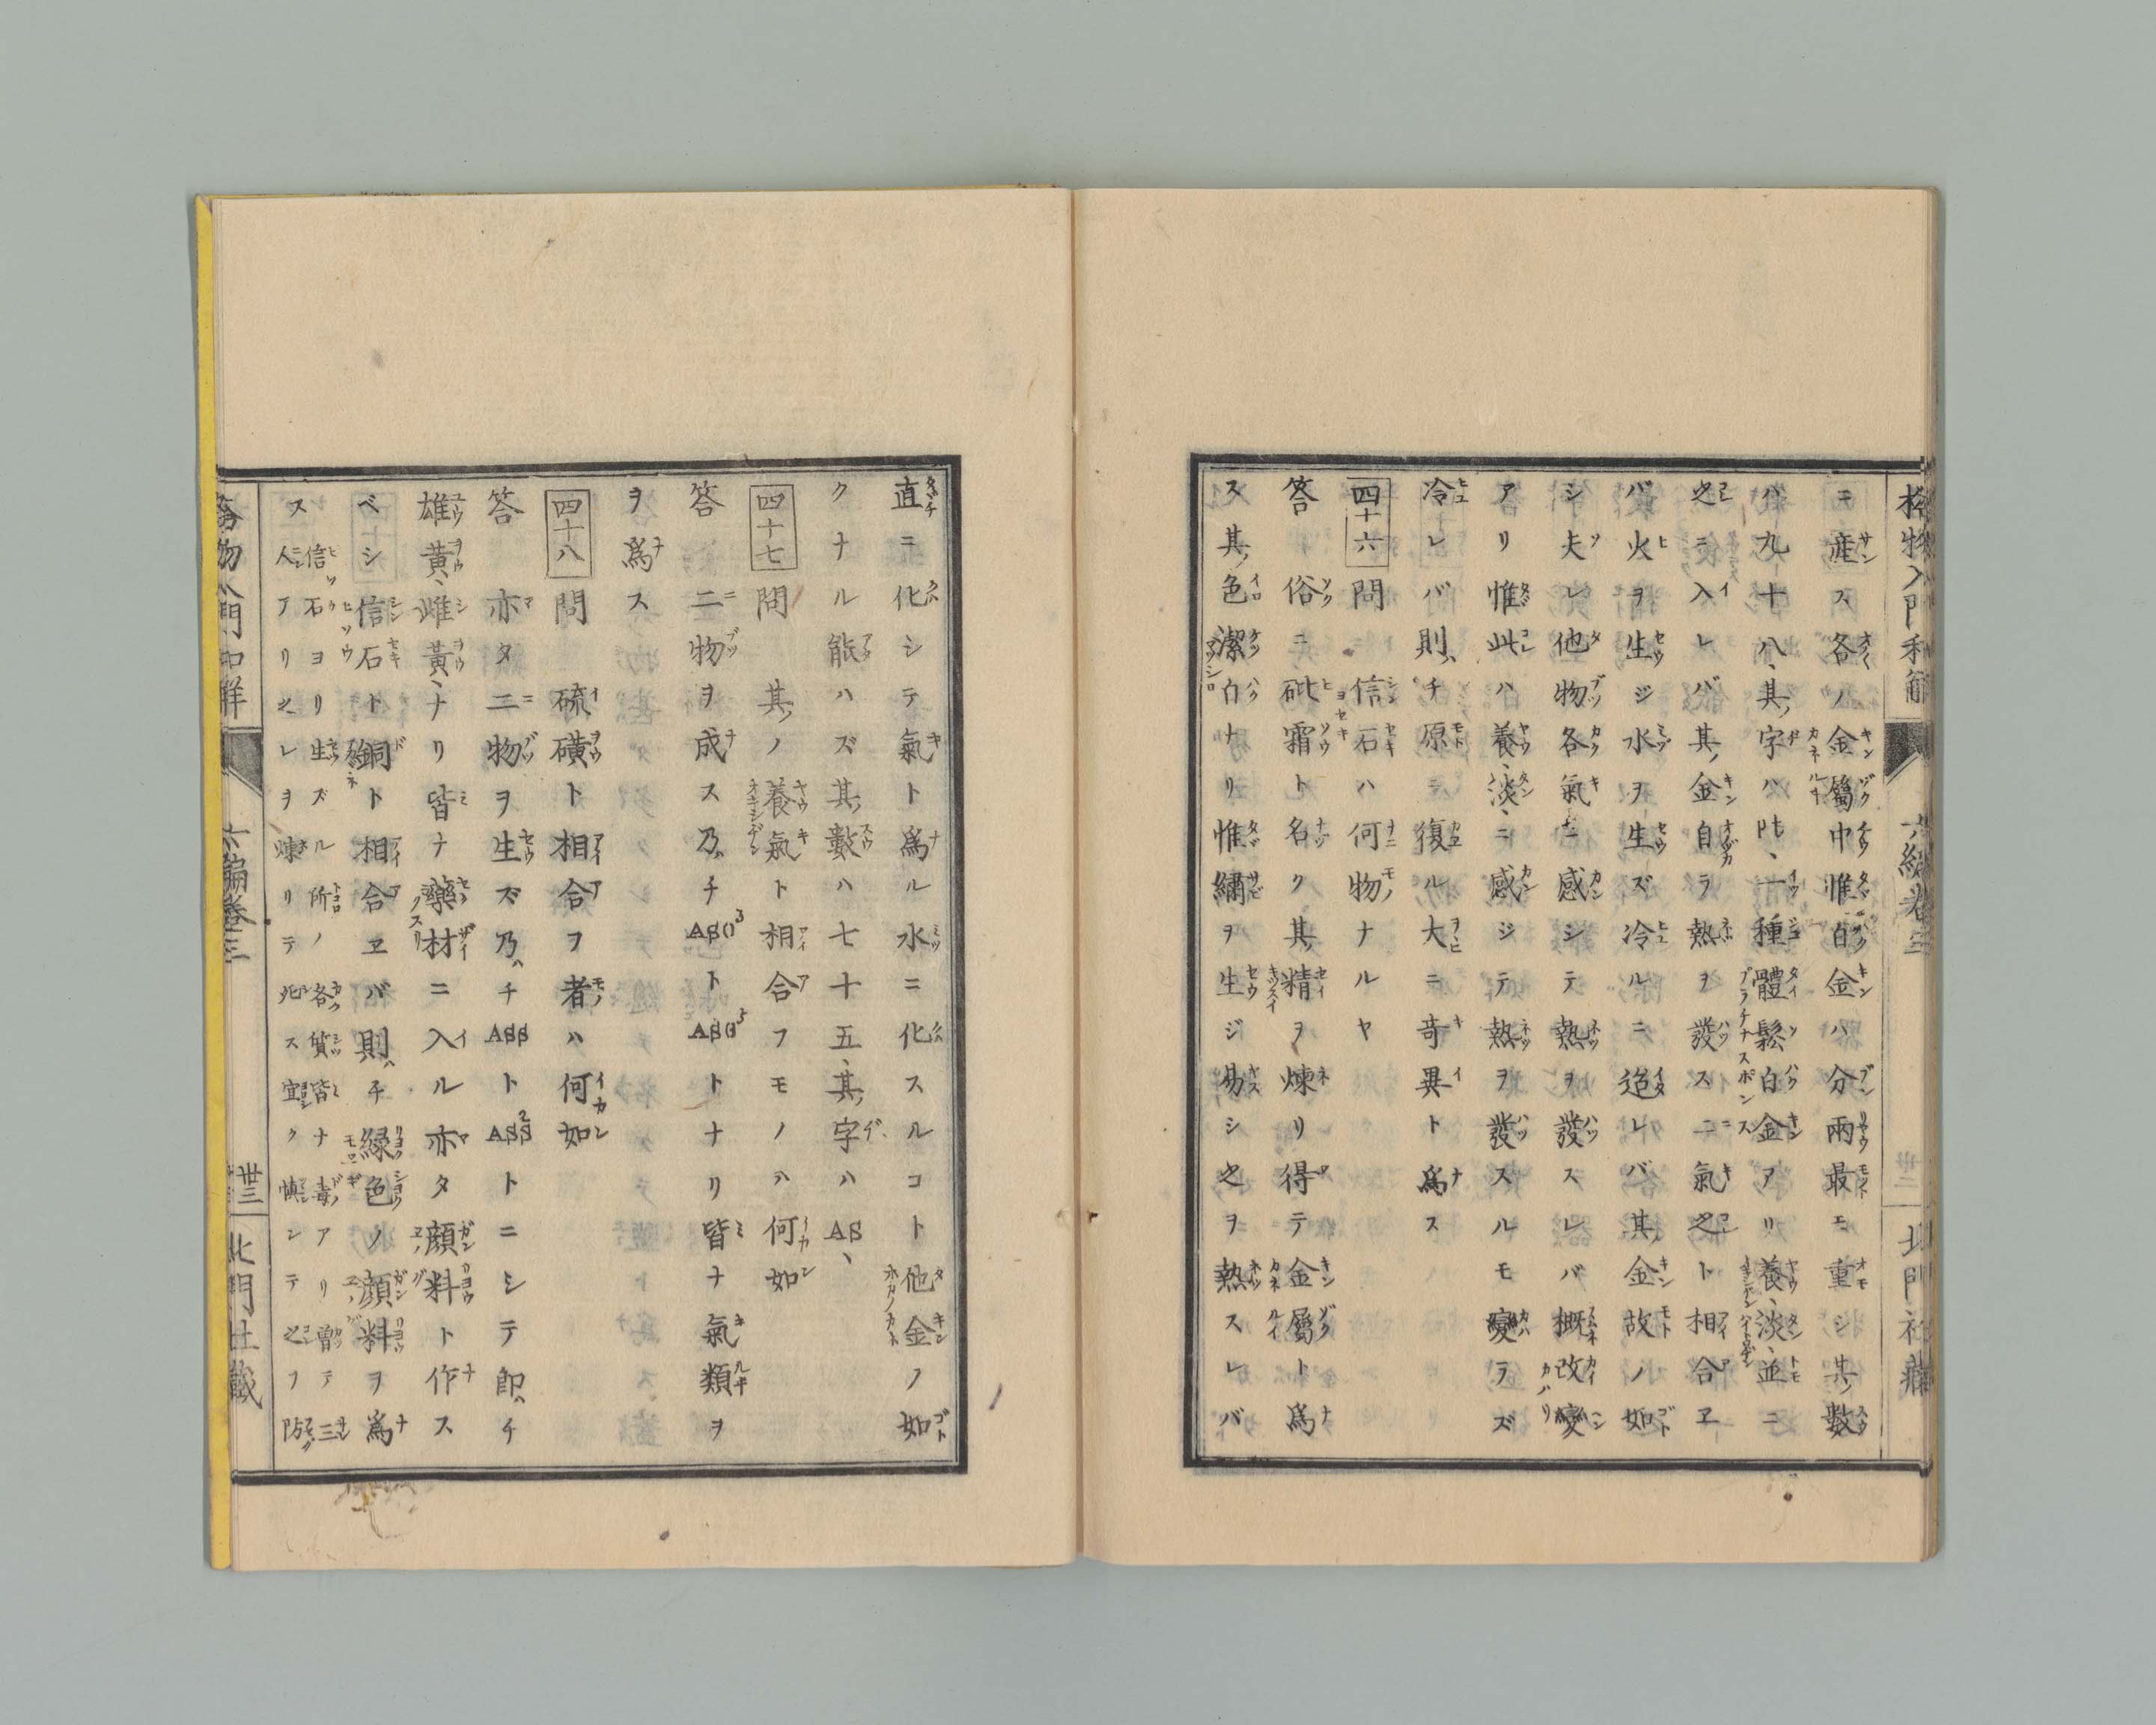 格物入門和解 六編卷三 北門社藏
ニ産ス各ノ金屬中惟白金ハ分兩最モ重シ其ノ數
ハ九十八、其ノ字ハpt、一種體鬆白金アリ養、淡、並ニ
之ニ入レバ其ノ金自ラ熱ヲ發ス二氣之ト相合ヱ
バ火ヲ生ジ水ヲ生ズ冷ルニ迨レバ其ノ金故ノ如
シ夫レ他物各氣ニ感シテ熱ヲ發スレバ概改變
アリ惟此ハ養、淡、ニ感ジテ熱ヲ發スルモ變ラズ
冷レバ則ハチ原ニ復ル大ニ奇異ト爲ス
四十六 問 信石ハ何物ナルヤ
答 俗ニ砒霜ト名ク其ノ精ヲ煉リ得テ金屬ト爲
ス其ノ色潔白ナリ惟繡ヲ生ジ易シ之ヲ熱スレバ
直ニ化シテ氣ト爲ル水ニ化スルコト他金ノ如
クナル能ハズ其ノ數ハ七十五、其ノ字ハAS、
四十七 問 其ノ養氣ト相合フモノハ何如
答 二物ヲ成ス乃ハチASO3トASO5トナリ皆ナ氣類ヲ
ヲ爲ス
四十八 問 硫磺ト相合フ者ハ何如
答 亦タ二物ヲ生ズ乃ハチASSトASS2トニシテ即ハチ
雄黄、雌黄、ナリ皆ナ藥材ニ入ル亦タ顔料ト作ス
ベシ信石ト銅ト相合ヱバ則ハチ緑色ノ顔料ヲ爲
ス 信石ヨリ生ズル所ノ各質皆ナ毒アリ曾テ三
人アリ之レヲ煉リテ死ス宜ク愼ンテ之フ防
格物入門和解 六編卷三 卅三 北門社藏